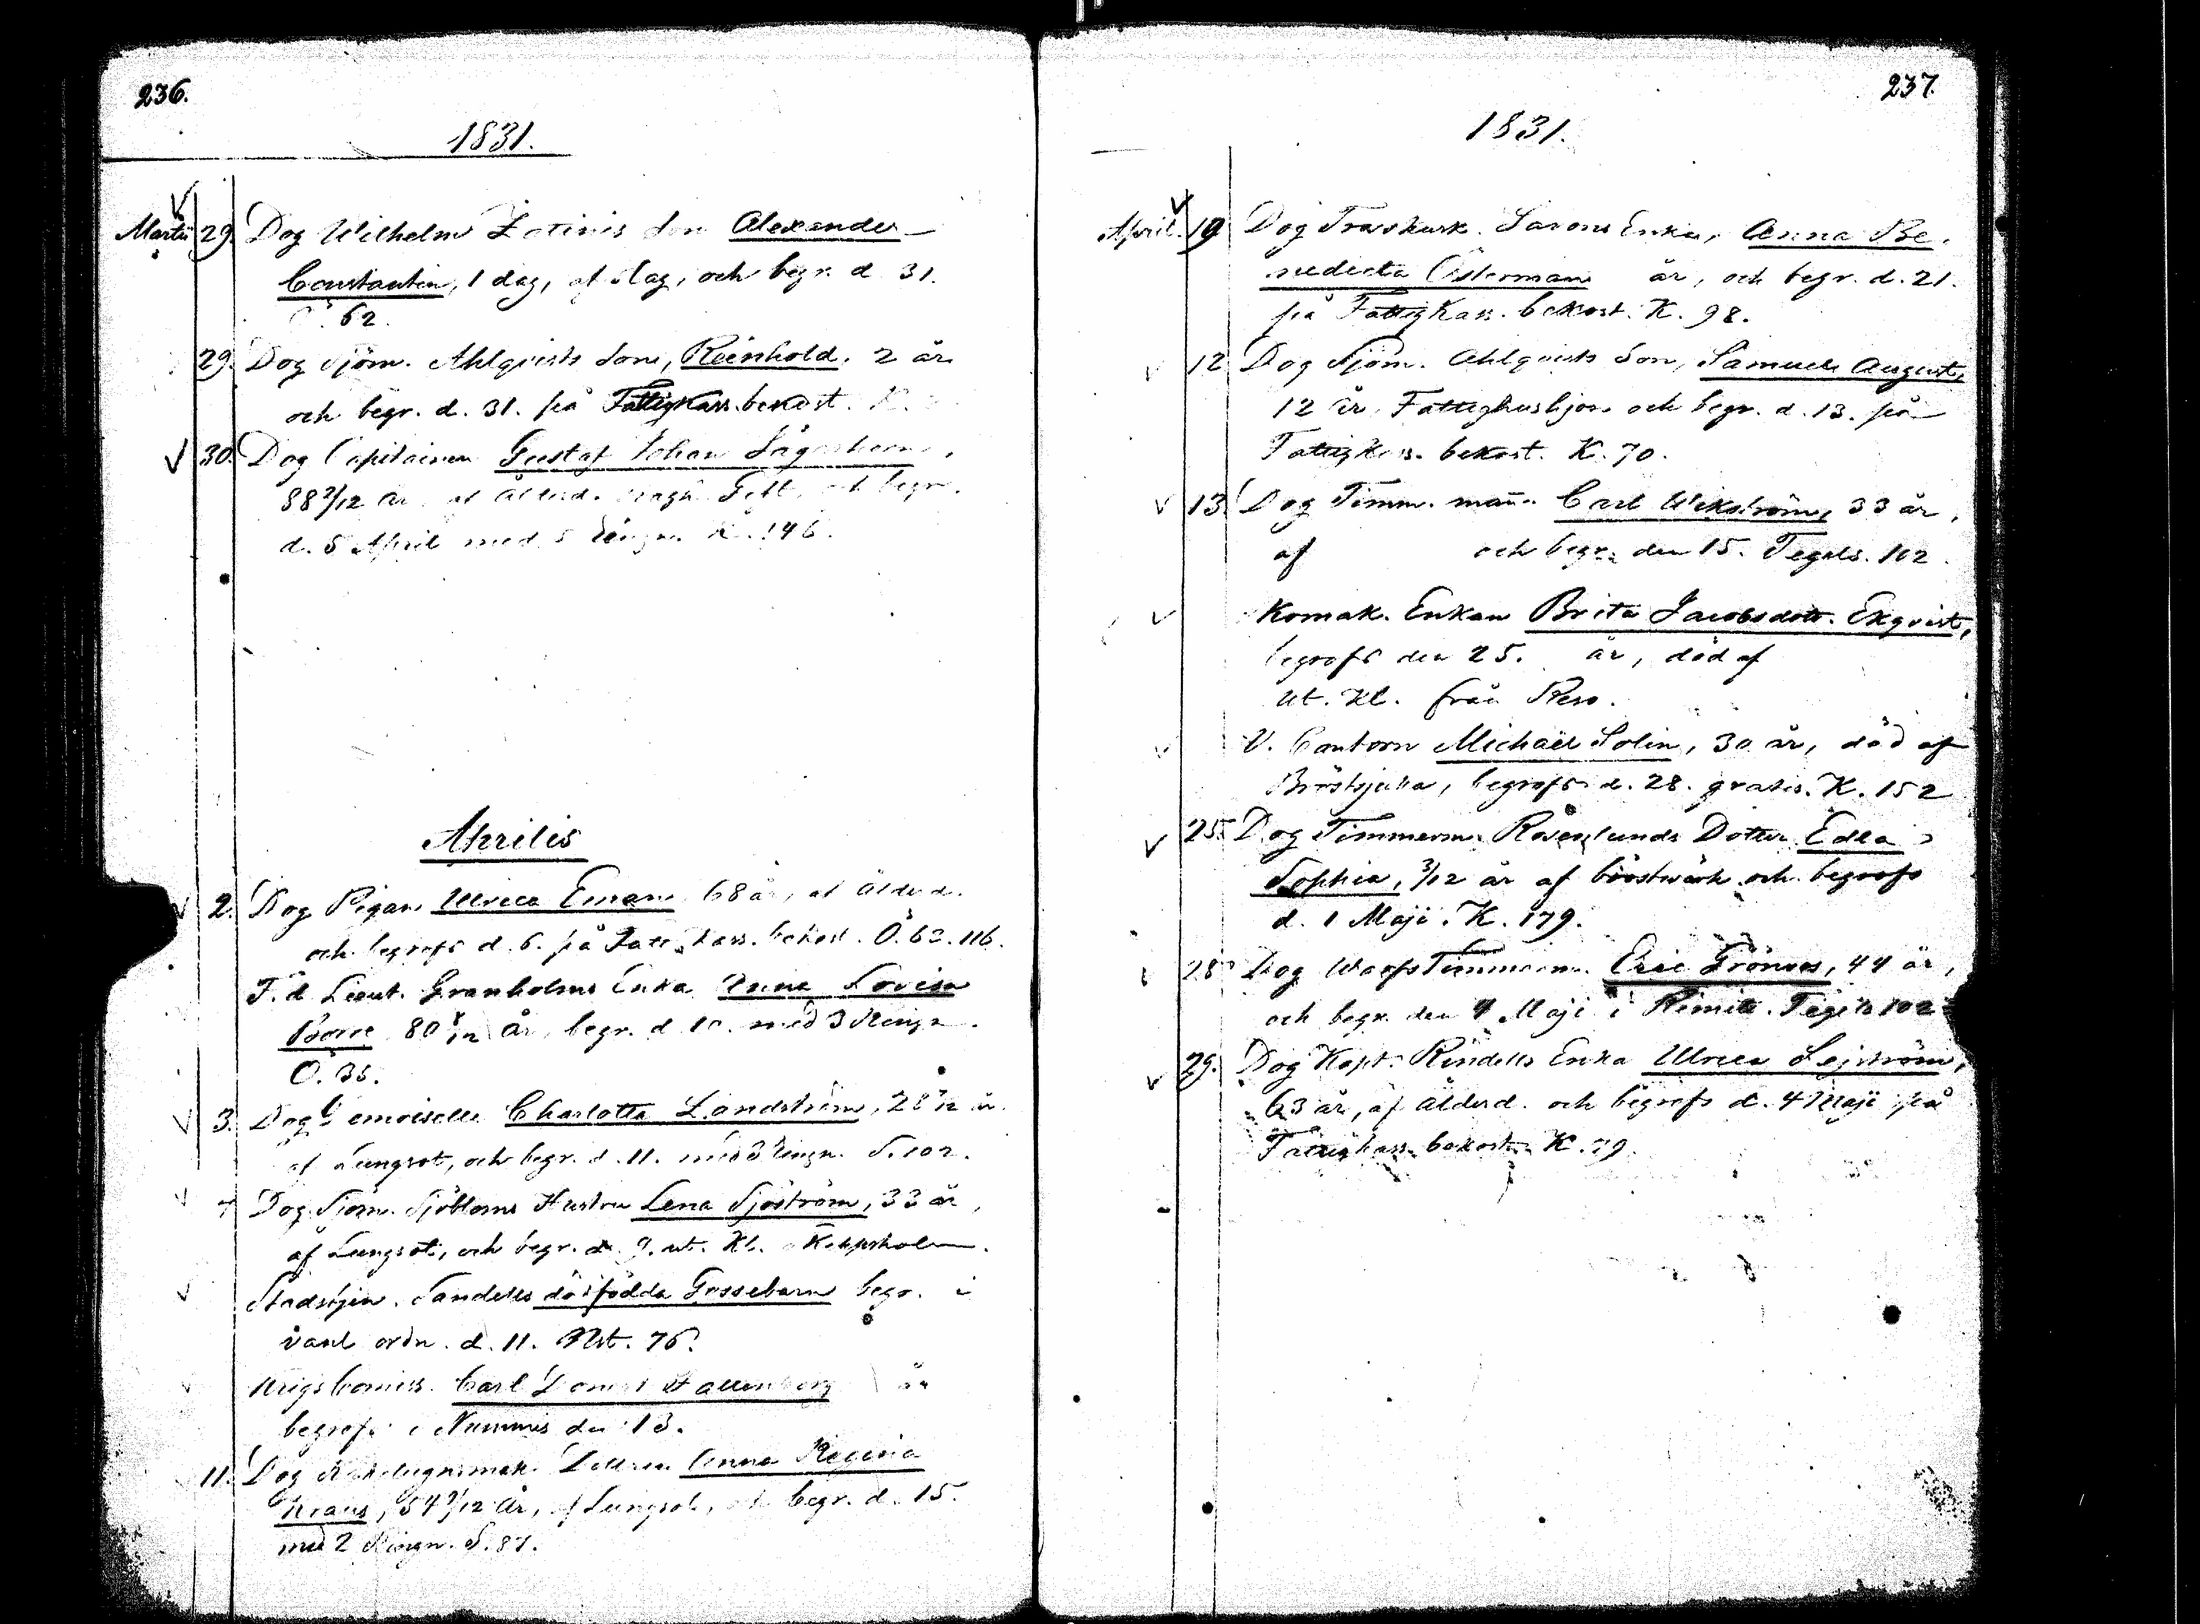 236.
1831.
Martii 29. Dog Wilhelm son Alexander
Constantin, 1 dag, af slag, och begr. d 31.
62.
29. Dog Sjöm. Ahlqvists Son, Reinhold, 2 år
och begr. d. 31. på Fattigkass. bekost. K.
30. Dog Capitainen Gustaf Johan Lägerhorn,
88 2/12 år af Ålderd. och begr.
d. 5 April med 5 Ringn. K. 146.
Aprilis
2. Dog Pigan Ulrica Eman 68 år, af Ålderd.
och begrofs d. 6. på Fattigkass. bekost. Ö. 62. 116.
F. d. Lieut. Granholms Enka Anna Lovisa
80 år, begr. d 10. med 3 Ringn.
Ö. 35.
3. Dog Demoiselle Charlotta Landström, 28 år.
af Lungsot, och begr. d. 11. med 3 Ringn. S. 102.
7 Dog Sjöm. Sjöbloms Hustru Lena Sjöström, 33 år,
af Lungsot, och begr. d. 9. ut. Kl.
Sandells dödfödda Gossebarn begr. i
vanl. ordn. d. 11. Nst. 76.
Krigs Comiss. Carl
begrofs i Nummis den 13.
11. Dog Kakelugnsmak. Anna Regina
Kraus, 54 år, af Lungsot, och begr. d. 15.
med 2 Ringn. S. 87.
237.
1831.
April. 19 Dog Enka, Anna Be-
nedicta Österman år, och begr. d. 21.
på Fattigkass. bekost. K. 98.
12 Dog Sjöm. Ahlqvists Son, Samuel August,
12 år, Fattighushjon och begr. d. 13. på
Fattigkass. bekost. K. 70.
13 Dog Timm. mañ. Carl Wikström, 33 år,
af och begr. den 15. Tegels. 102.
Komak. Enkan Brita Jacobsdotr. Ekqvist,
begrofs den 25. år, död af
ut. Kl. från Reso.
V. Cantorn Michaël Solin, 30 år, död af
Bröstsjuka, begrofs d. 28. gratis. K. 152
25. Dog Timmerm. Rosenlunds Dotter Edla
Sophia, 3/12 år af bröstwärk och begrofs
d. 1 Maji. K. 179.
28 Dog Warfs Timmerm. Eric Grönroos, 44 år,
och begr. den 4 Maji i Rimito. Tegels 102
29. Dog Kopt. Rindells Enka Ulrica Lejström,
63 år, af Ålderd. och begrofs d. 4 Maji på
Fattigkass. bekost. K. 79.